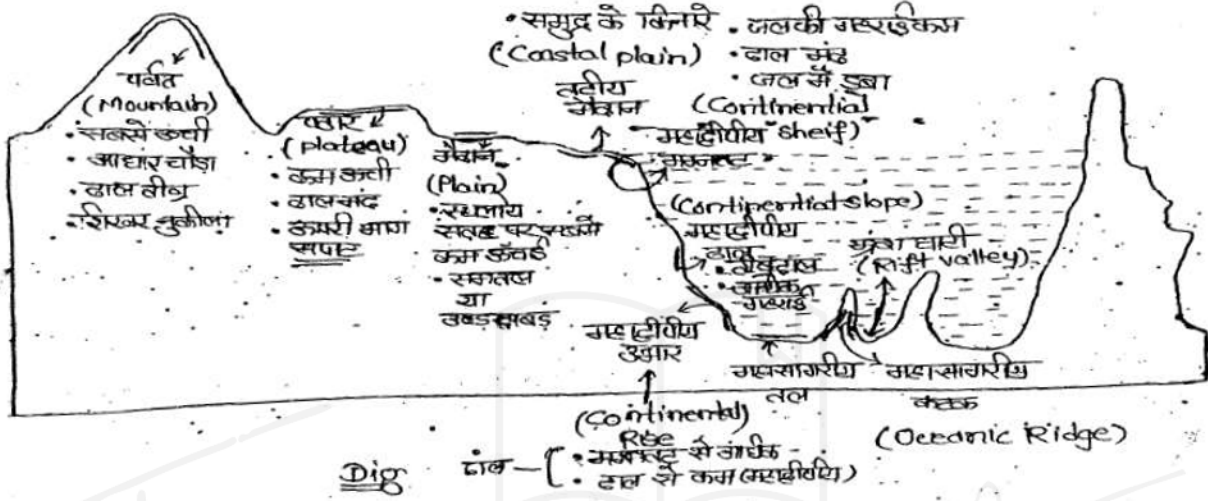 • समुद्र के किनारे
(Coastal plain)
तटीय
मैदान
• जल की गहराई कम
• ढाल मंद
• जल में डूबा
(Continential
महाद्वीपीय Shelf)
मग्नतट
पर्वत
(Mountain)
• सबसे ऊंची
• आधार चौड़ा
• ढाल तीव्र
• शिखर नुकीला
पठार
(plateau)
• कम ऊंची
• ढाल मंद
• ऊपरी भाग
सपाट
मैदान
(Plain)
• स्थलीय
सतह पर सबसे
कम ऊँचाई
• समतल
या
उबड़खाबड़
(Continential slope)
महाद्वीपीय
ढाल
• तीव्र ढाल
• अधिक
गहराई
भ्रंश घाटी
(Rift valley)
महाद्वीपीय
उभार
(Cointinental)
Rise
महासागरीय
तल
महासागरीय
कटक
(Oceanic Ridge)
Dig
ढाल –
• मग्नतट से अधिक
• ढाल से कम (महाद्वीपीय)